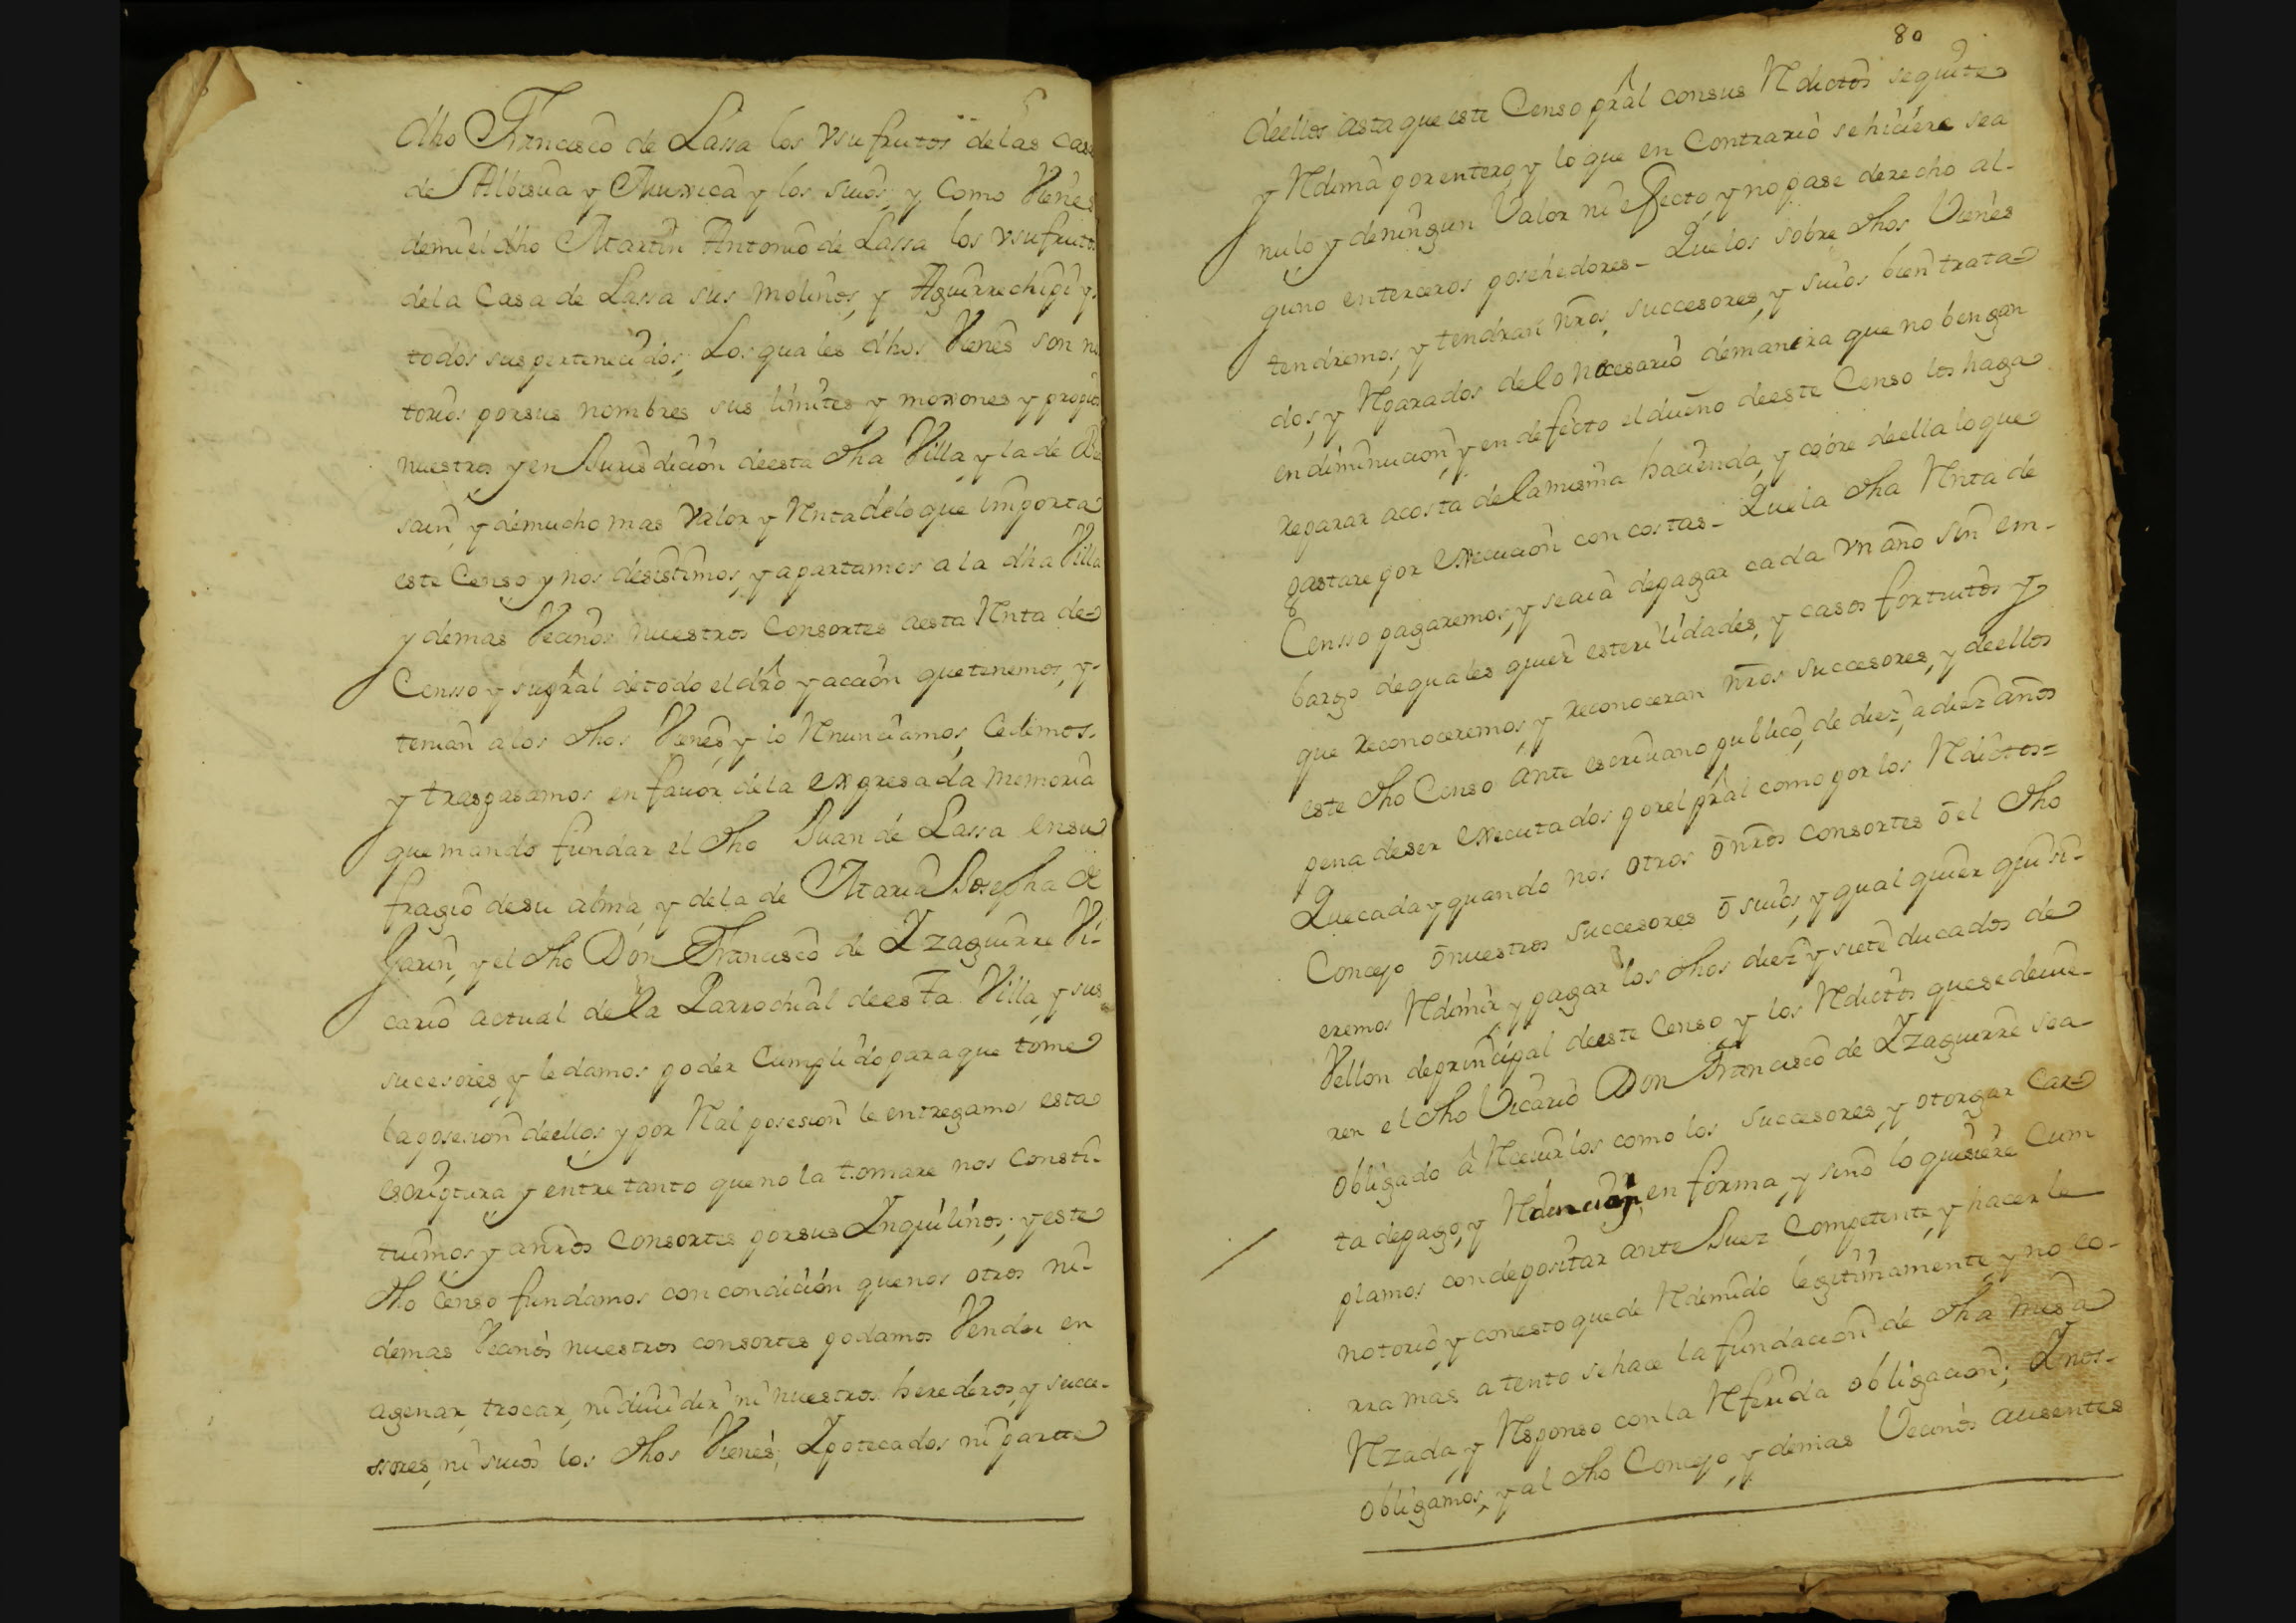 dho Francisco de Lassa los vsufrutos delas casas
de Albisua y Muxica y los suios, y Como Vienes
demi el dho Martin Antonio de Lassa los vsufrutos
dela Casa de Lassa sus molinos, y Aguirrechipi y
todos sus pertenecidos; Los quales dhos Vienes son no
torios por sus nombres sus limites y moxones y propios
nuestros y en Jurisdición deesta dha Villa y la de
sain, y demucho mas valor y Renta delo que importa
este Censo y nos desistimos, y apartamos a la dha Villa
y demas Vecinos nuestros Consortes aesta Renta de
Censso y su pral de todo el dro y accion que tenemos, y
tenian a los dhos Vienes, y lo Renunciamos, Cedimos
y traspasamos en fauor dela expresada memoria
que mando fundar el dho Juan de Lassa en su
fragio desu alma, y dela de Maria Josepha de
Garin, y el dho Don Francisco de Yzaguirre Vi-
cario actual dela Parrochial deesta Villa, y sus
sucesores, y le damos poder Cumplido para que tome
la posesion deellos, y por Real posesion le entregamos esta
escriptura y entretanto que no la tomare nos Consti-
tuimos y a nros Consortes por sus Ynquilinos; y este
dho Censo fundamos con condición que nos otros ni
demas Vecinos nuestros consortes podamos Vender en
agenar, trocar, ni diuidir ni nuestros herederos, y succe-
ssores, ni suios los dhos Vienes, Ypotecados ni partte
80
deellos asta que este Censo pral con sus Redictos se quite
y Redima por entero, y lo que en Contrario se hiciere sea
nulo y de ningun Valor ni efecto y no pase derecho al-
guno enterceros posehedores - Que los sobre dhos Vienes
tendremos, y tendran nros, succesores, y suios bien trata
dos, y Reparados delo necesario demanera que no bengan
en diminucion, y en defecto el dueño deeste Censo los haga
reparar acosta delamisma hacienda, y cobre deella lo que
gastare por execucion con costas - Que la dha Renta de
Censso pagaremos, y se aia depagar cada vn año sin em-
bargo de quales quier esterilidades, y casos fortuitos y
que reconoceremos, y reconoceran nros succesores, y deellos
este dho Censo ante escriuano publico, de diez, a diez años
pena deser executados por el pral como por los Redictos=
Que cada y quando nos otros ō nros consortes ō el dho
Concejo ō nuestros succesores ō suios, y qual quier quisi-
eremos Redimir y pagar los dhos diez y siete ducados de
Vellon deprincipal deeste Censo y los Redictos que se deuie-
ren el dho Vicario Don Francisco de Yzaguirre sea
obligado á Receuirlos como los succesores, y otorgar Car
ta depago, y Redencion en forma, y sino lo quisiere Cum
plamos condepositar ante Juez Competente, y hacerle
notorio y con esto quede Redimido legitimamente, y no co-
rra mas a tento se hace la fundacion de dha misa
Rezada, y Responso con la Referida obligacion; Y nos
obligamos, y al dho Concejo, y demas Vecinos ausentes